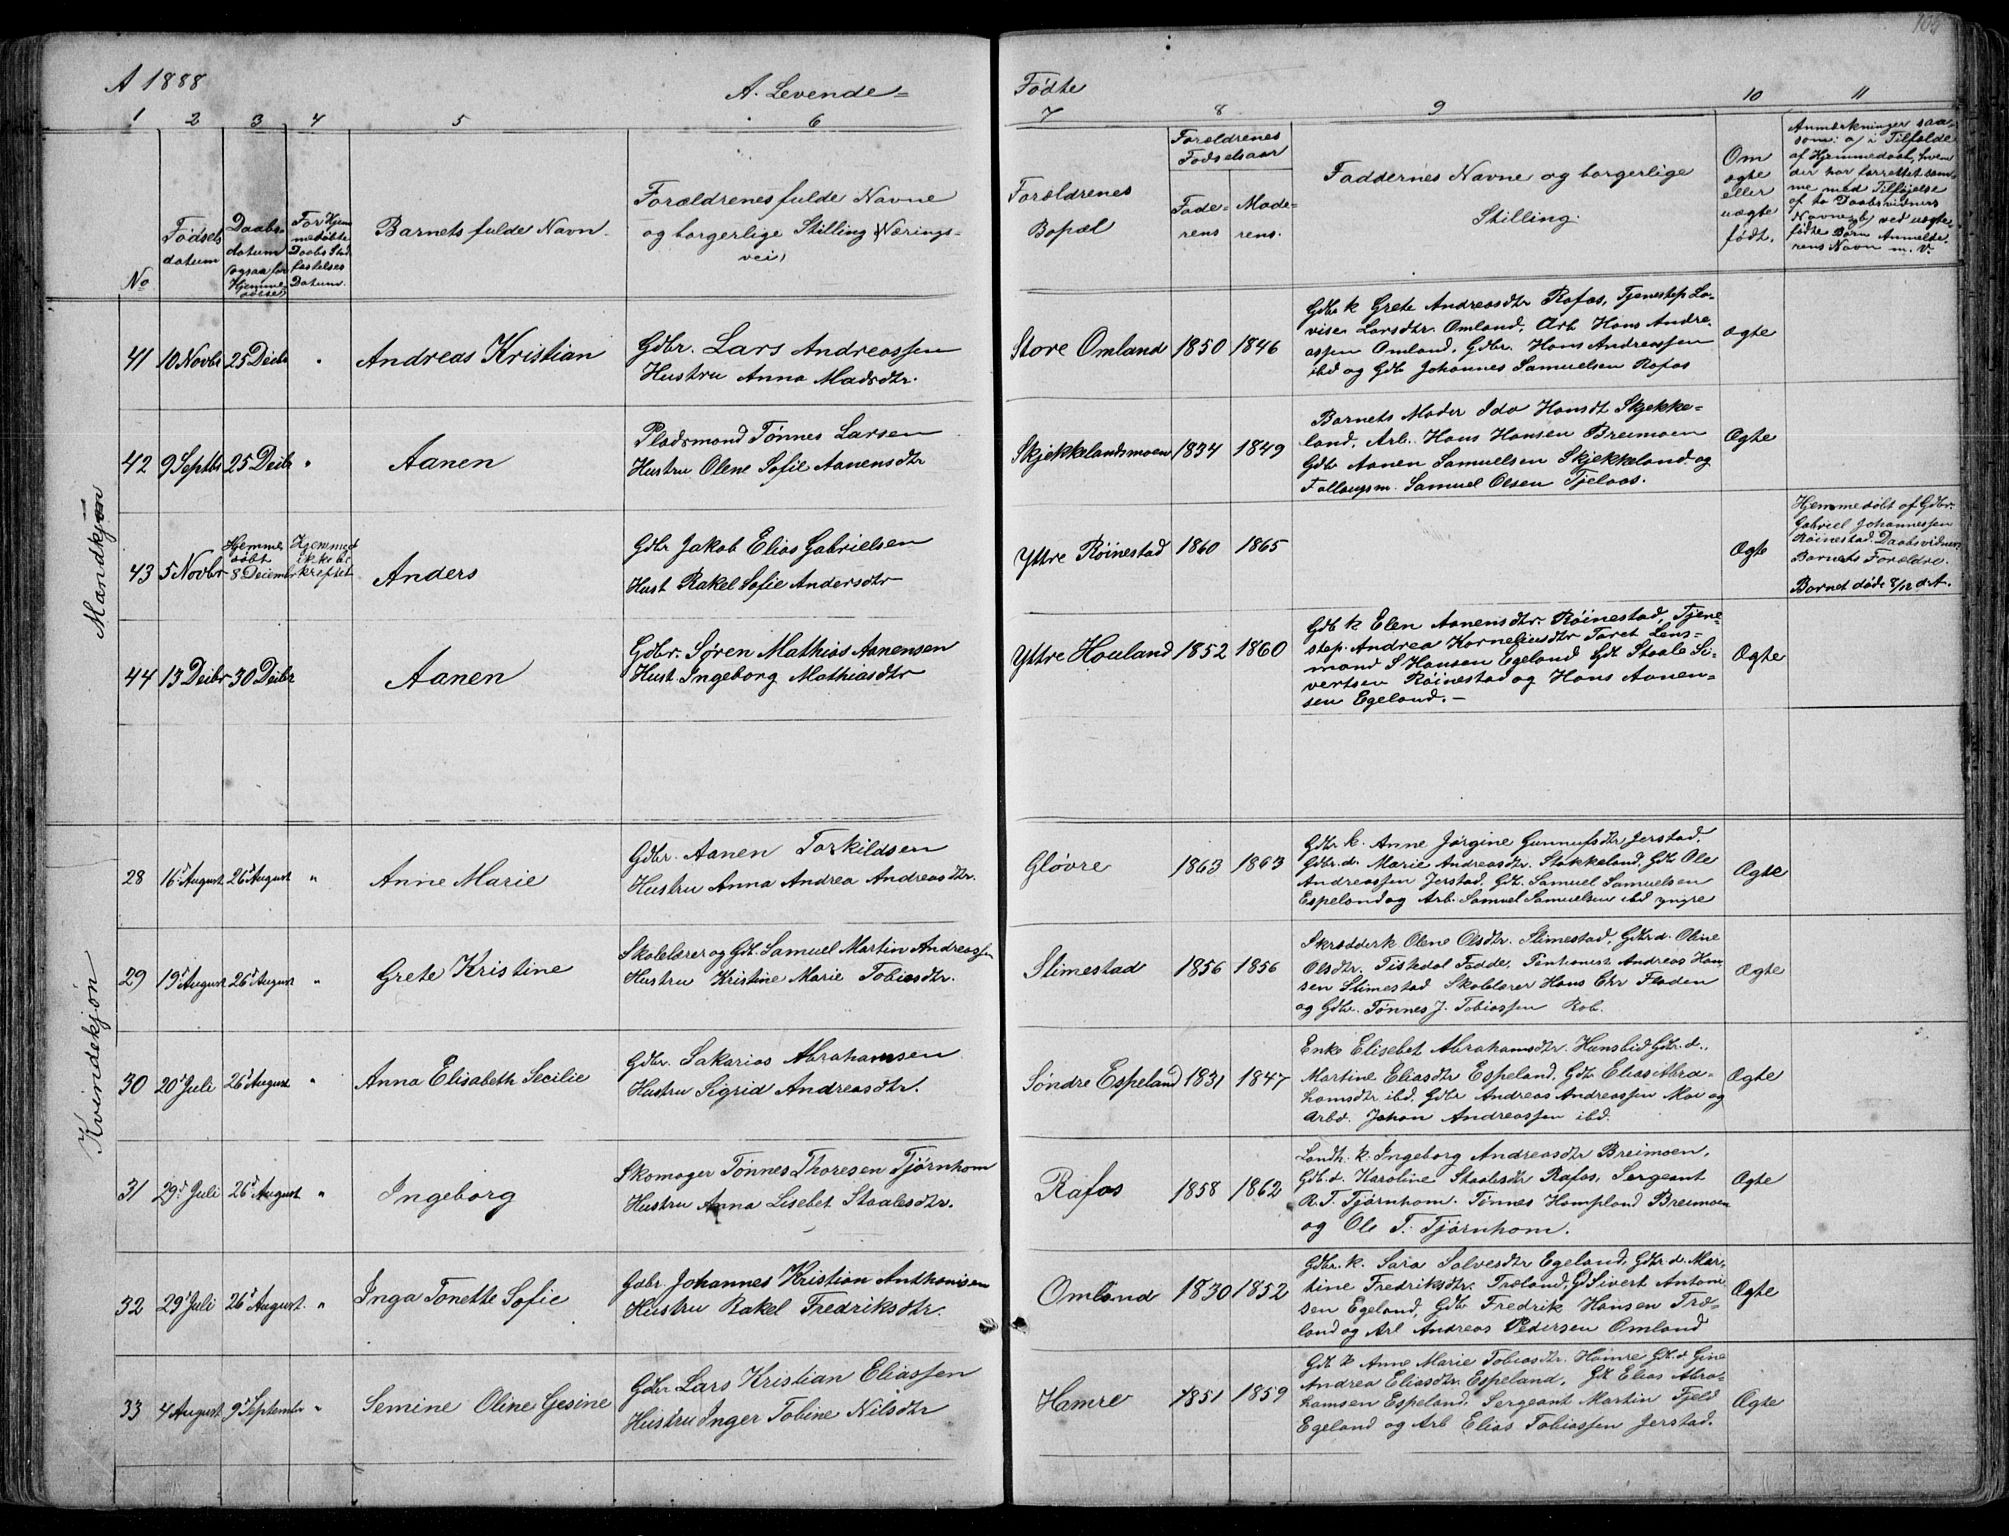 A 1888
A. Levende=
Fødte
1 2 3 4 5 6
7 8 9 10 11
No
Fødsels
datum
Daabs
datum
(ogsaa for
Hjemme
For Hjem
medøbte
Daabs Stad
fæstelses
Datum.
Barnets fulde Navn.
Forældrenes fulde Navne
og borgerlige Stilling (Nærings-
vei)
Forældrenes
Bopæl
Forældrenes
Fødselsaar
Fade-
rens
Mode-
rens.
Faddernes Navne og borgerlige
Stilling.
Om
ægte
eller
uægte
født.
Anmærkninger saa-
som: a/ i Tilfælde
af Hjemmedaab, hvem
der har forrettet sam-
me med Tilføjelse
af to Daabsvidners
Navne, b/ ved uægte
fødte Børn Anmelde-
rens Navn m. V.
Mandkjøn
41 10 Novbr 25 Decbr " Andreas Kristian
Gdbr. Lars Andreassen
Hustru Anna Madsdtr.
Store Omland 1850 1846
Gdbr k Grete Andreasdtr Rafos, Tjenestep Lo-
vise Larsdtr. Omland, Arb Hans Andre-
assen Omland, Gdbr. Hans Andreassen
ibd og Gdb Johannes Samuelsen Rafos
ægte
42 9 Septbr 25 Decbr " Aanen
Pladsmand Tønnes Larsen
Hustru Olene Sofie Aanensdtr
Skjekkelandsmoen 1834 1849
Barnets Moder Ida Hansdt Skjekke-
land, Arb. Hans Hansen Breimoen
Gdbr Aanen Samuelsen Skjekkeland og
Samuel Olsen Tjelaas.
Ægte
43 5 Novbr Hjemme
døbt
8 December
Hjemmed
ikke be
kræftet
Anders
Gdbr Jakob Elias Gabrielsen
Hust Rakel Sofie Andersdtr
Yttre Røinestad 1860 1865
Ægte
Hjemmedøbt af Gdbr.
Gabriel Johannessen
Røinestad. Daabsvidner
Barnets Forældre.
Barnet døde 8/12 d. A.
44 13 Decbr 30 Decbr Aanen
Gdbr. Søren Mathias Aanensen
Hust. Ingeborg Mathiasdtr
Yttre Houland 1852 1860
Gdb k Elen Aanensdtr. Røinestad, Tjene-
step. Andrea Korneliusdtr Taret Lens-
mand S Hansen Egeland Gdb Staale Si-
vertsen Røinestad og Hans Aanen-
sen Egeland. —
Ægte
Kvindekjøn
28 16 August 26 August " Anne Marie
Gdbr. Aanen Torkildsen
Hustru Anna Andrea Andreasdtr.
Gløvre 1863 1863
Gdbr k. Anne Jørgine Gunnufsdtr Jerstad,
Gdbr. d. Marie Andreasdtr. Stokkeland, Gdb Ole
Andreassen Jerstad, Gdb. Samuel Samuelsen
Espeland og Arb. Samuel Samuelsen ibd yngre
Ægte
29 19 August 26 August " Grete Kristine
Skolelærer og Gdb. Samuel Martin Andreassen
Hustru Kristine Marie Tobiasdtr.
Slimestad 1856 1856
Skrædderk Olene Olsdtr. Slimestad, Gdbr d. Oline
Olsdtr. Fiskedal Fadde, Pentionist Andreas Han-
sen Slimestad Skolelærer Hans Chr Fladen
og Gdbr. Tønnes J. Tobiassen Rob.
Ægte
30 20 Juli 26 August " Anna Elisabeth Secilie
Gdbr. Sakarias Abrahamsen
Hustru Sigrid Andreasdtr.
Søndre Espeland 1831 1847
Enke Elisebet Abrahamsdtr. Hunsbid Gdbr. d.
Martine Eliasdtr Espeland, Gdb Elias Abra-
hamsdtr ibd, Gdbr Andreas Andreassen Moe og
Arbd. Johan Andreassen ibd.
Ægte
31 29 Juli 26 August " Ingeborg
Skomager Tønnes Thoresen Tjørnhom
Hustru Anna Lisebet Staalesdtr.
Rafos 1858 1862
Landh. k. Ingeborg Andreasdtr Breimoen,
Gdb. d. Karoline Staalesdtr Rafos, Sergeant
R. T. Tjørnhom. Tønnes Hompland Breimoen
og Ole T. Tjørnhom.
Ægte
32 29 Juli 26 August " Inga Tonette Sofie
Gdbr. Johannes Kristian Anthonisen
Hustru Rakel Fredriksdtr.
Omland 1830 1852
Gdbr. k. Sara Salvesdtr Egeland, Gdbr d. Mar-
tine Fredriksdtr. Træland, Gd Sivert Antoni-
sen Egeland, Gdbr Fredrik Hansen Træ-
land og Arb Andreas Pedersen Omland
Ægte
33 4 August 9 September " Semine Oline Gesine
Gdbr Lars Kristian Eliassen
Hustru Inger Tobine Nilsdtr
Hamre 1851 1859
Gdb k Anne Marie Tobiasdtr. Hamre Gdb. d Gine
Andrea Eliasdtr. Espeland, Gdb Elias Abra-
hamsen Espeland, Sergeant Martin Fjeld
Egeland og Arb Elias Tobiassen Jerstad.
Ægte